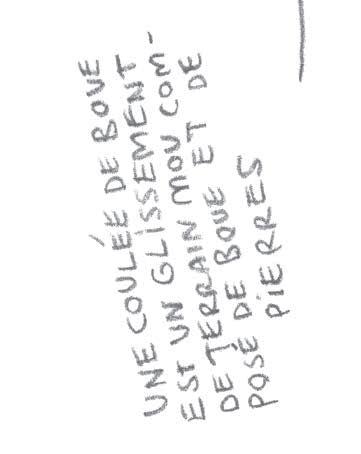 UNE COULÉE DE BOUE
EST UN GLISSEMENT
DE TERRAIN MOU COM-
POSÉ DE BOUE ET DE
PIERRES